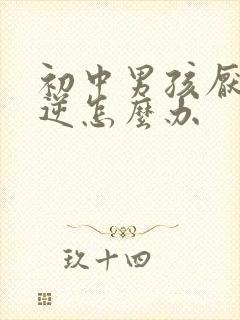 初中男孩厌
逆怎麼办
玖十四